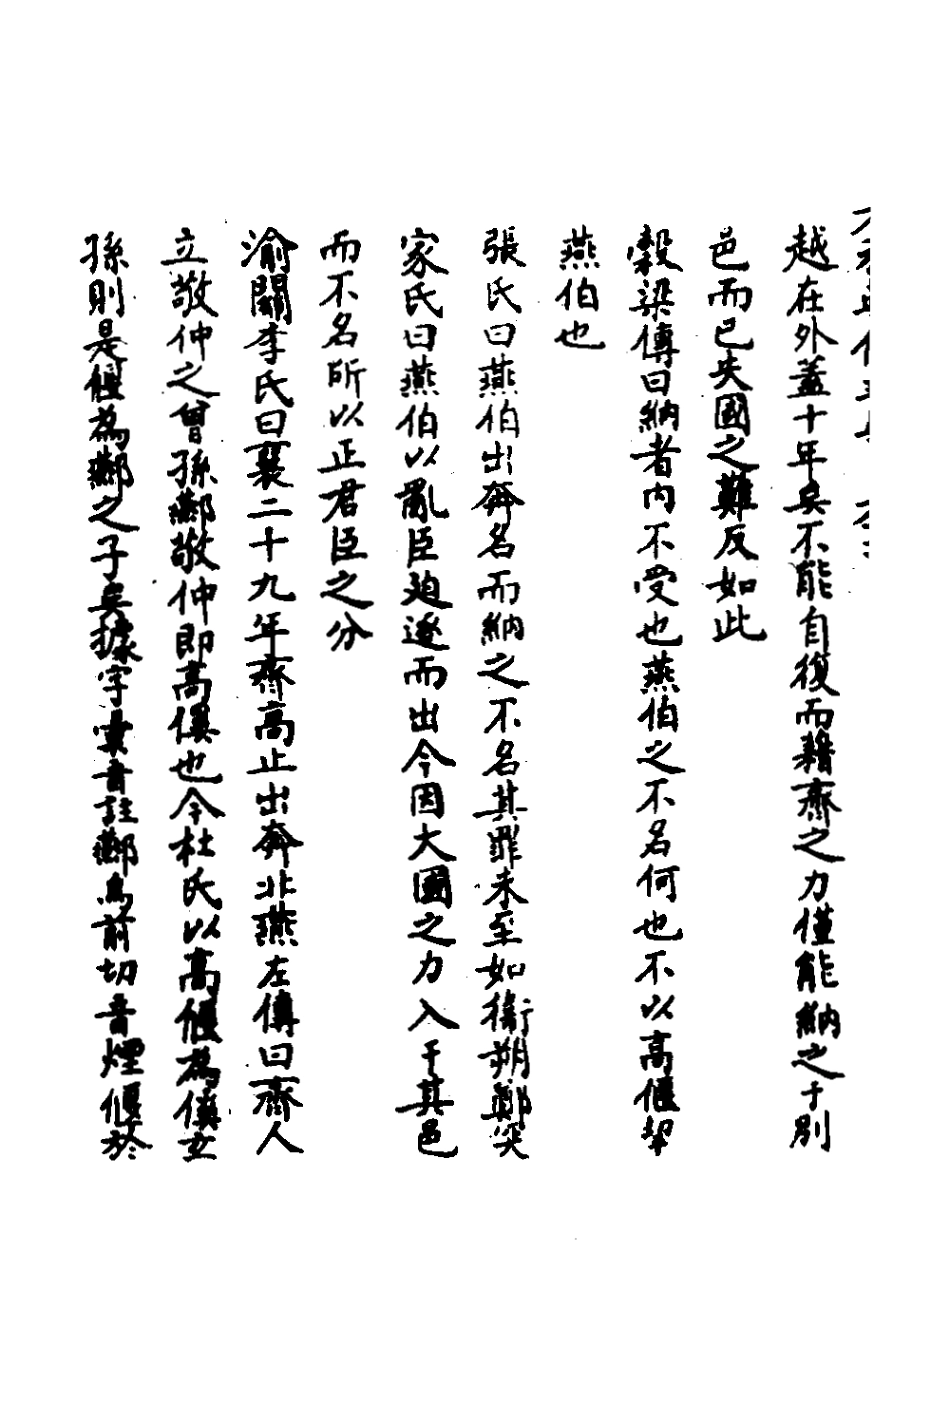 越在外蓋十年矣不能自復而藉齊之力僅能納之于別
邑而已失國之難反如此
穀梁傳曰納者內不受也燕伯之不名何也不以高偃挈
燕伯也
張氏曰燕伯出奔名而納之不名其罪未至如衛朔鄭突
家氏曰燕伯以亂臣迫逐而出今因大國之力入于其邑
而不名所以正君臣之分
渝關李氏曰襄二十九年齊高止出奔北燕左傳曰齊人
立敬仲之曾孫酀敬仲即高傒也今杜氏以高偃為傒玄
孫則是偃為酀之子矣據字彙音註酀烏前切音煙偃於